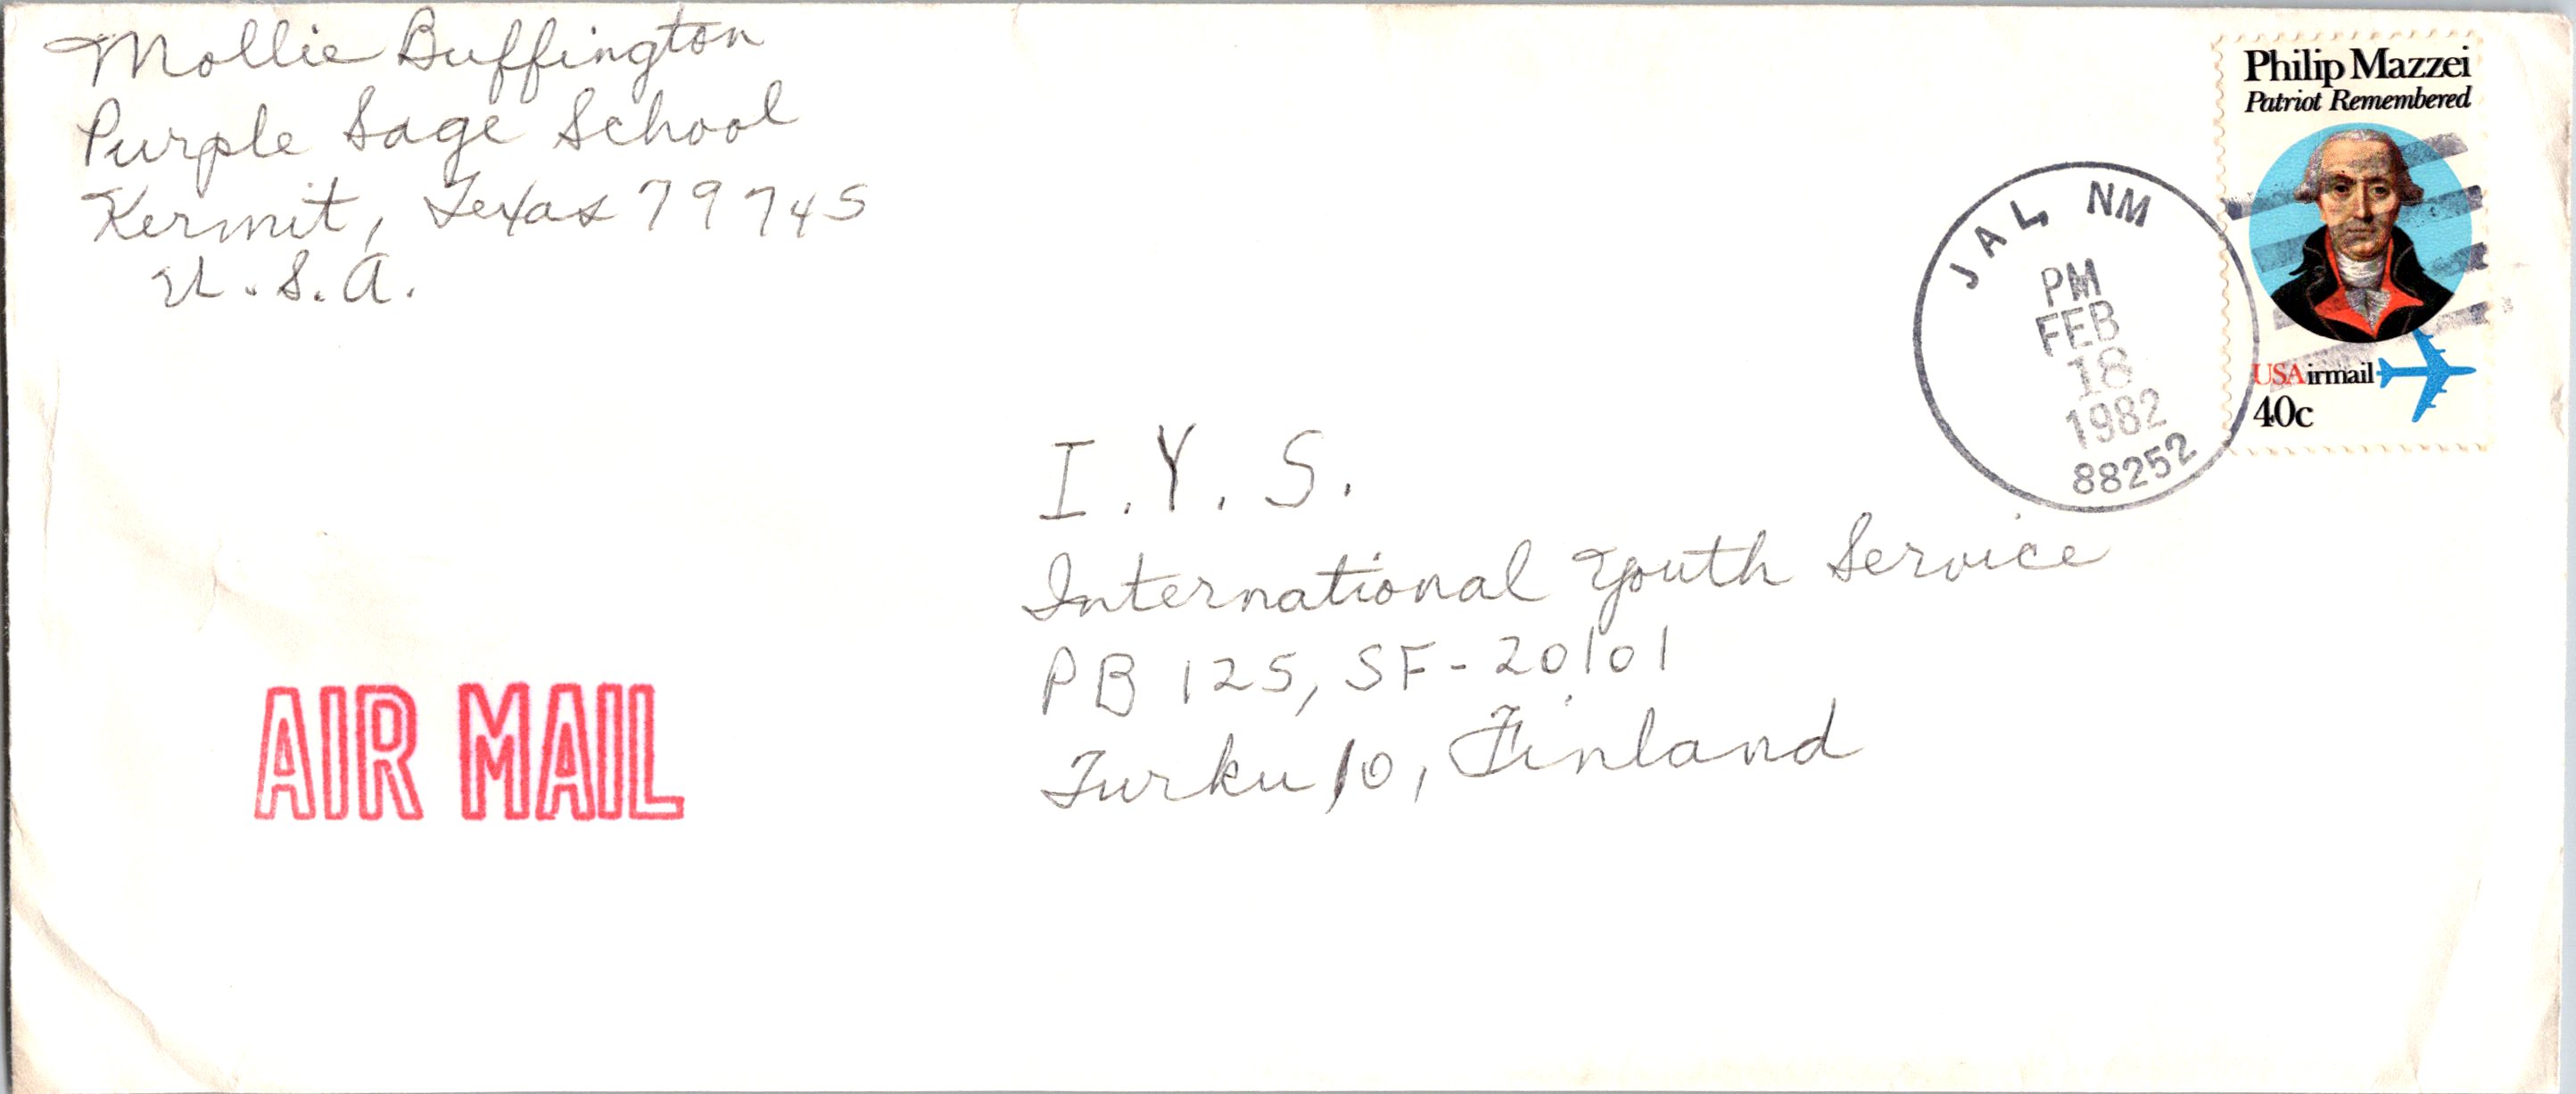 Mollie Buffington
Purple Sage School
Kermit, Texas 79745
U.S.A.
Philip Mazzei
Patriot Remembered
USAirmail
40c
JAL, NM
PM
FEB
18
1982
88252
I.Y.S.
International Youth Service
PB 125, SF-20101
Turku 10, Finland
AIR MAIL